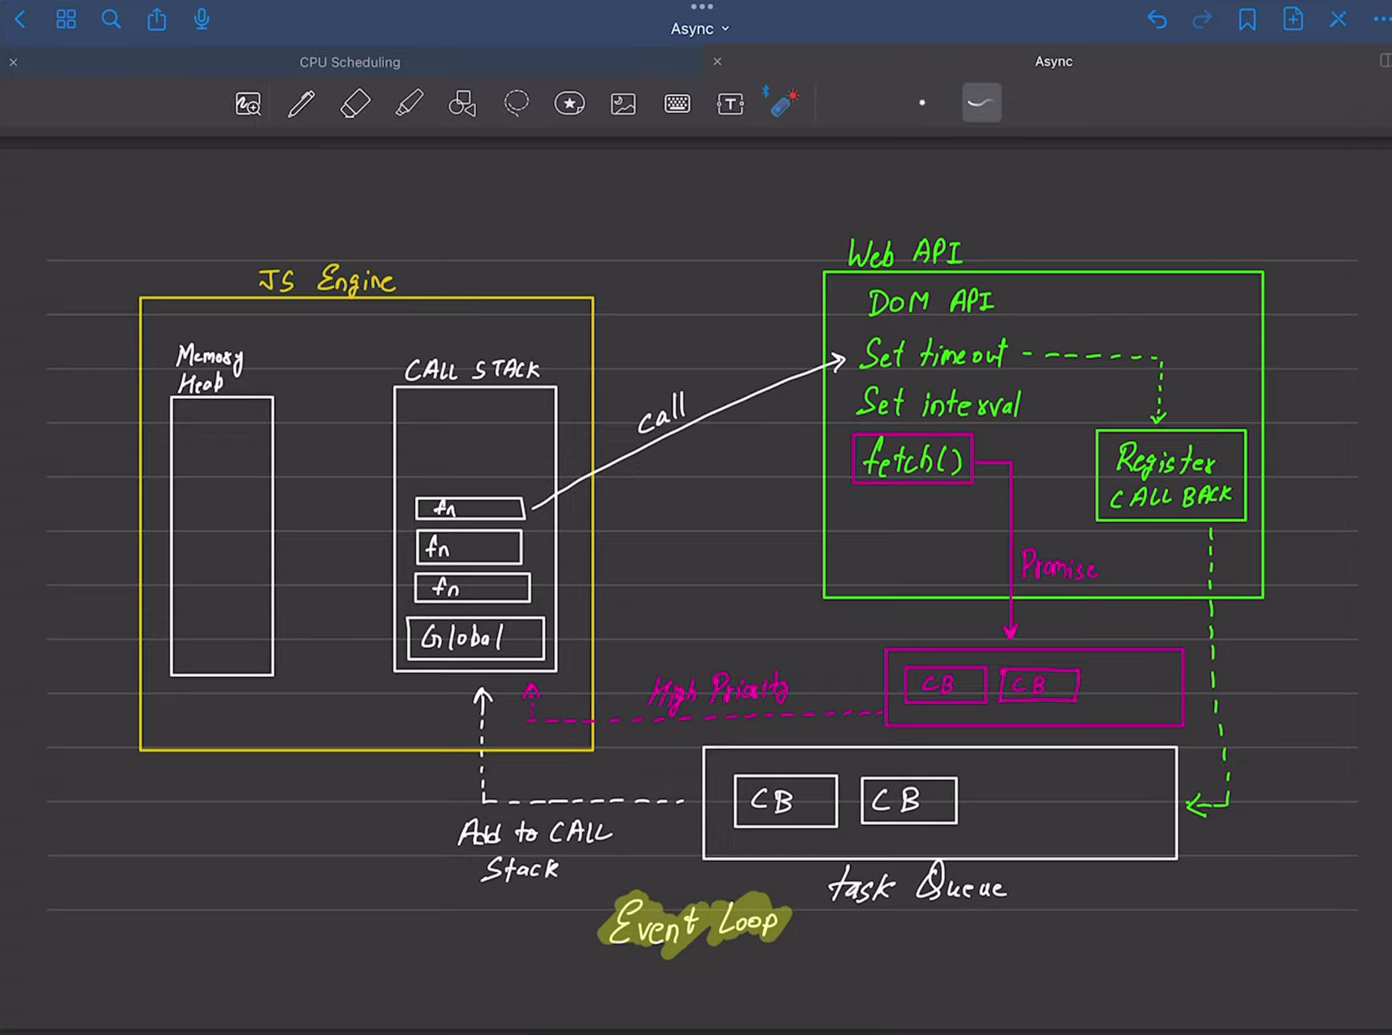 Async
CPU Scheduling
Async
JS Engine
Memory
Heap
CALL STACK
fn
fn
fn
Global
call
Web API
DOM API
Set timeout
Set interval
fetch()
Register
CALL BACK
Promise
High Priority
CB CB
CB CB
Add to CALL
Stack
task Queue
Event Loop